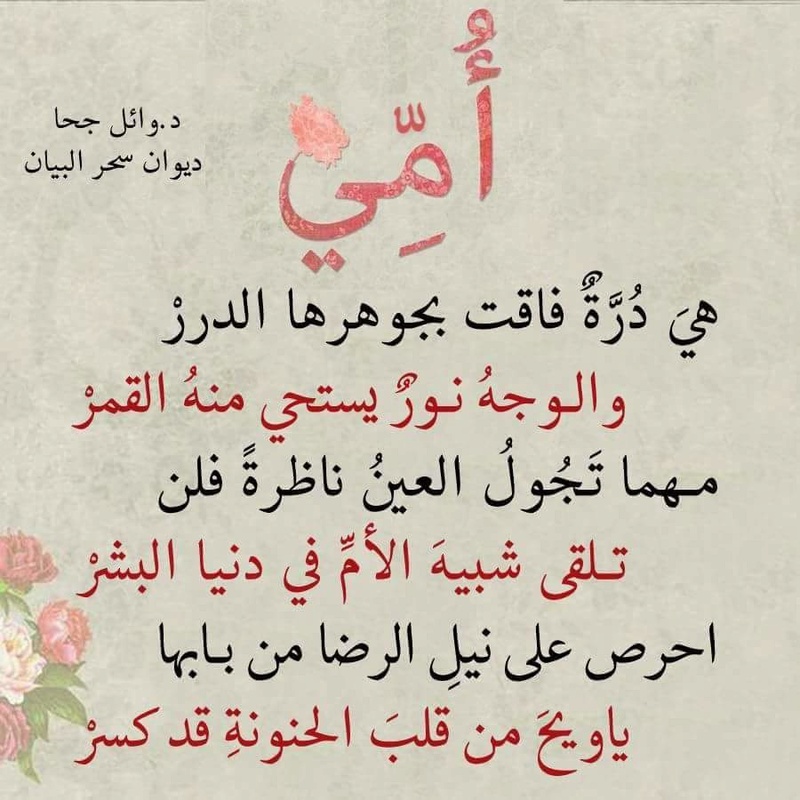 أُمِّي
د.وائل جحا
ديوان سحر البيان
هيَ دُرَّةٌ فاقت بجوهرها الدررْ
والوجهُ نورٌ يستحي منهُ القمرْ
مهما تَجُولُ العينُ ناظرةً فلن
تلقى شبيهَ الأمِّ في دنيا البشرْ
احرص على نيلِ الرضا من بابها
ياويحَ من قلبَ الحنونةِ قد كسرْ